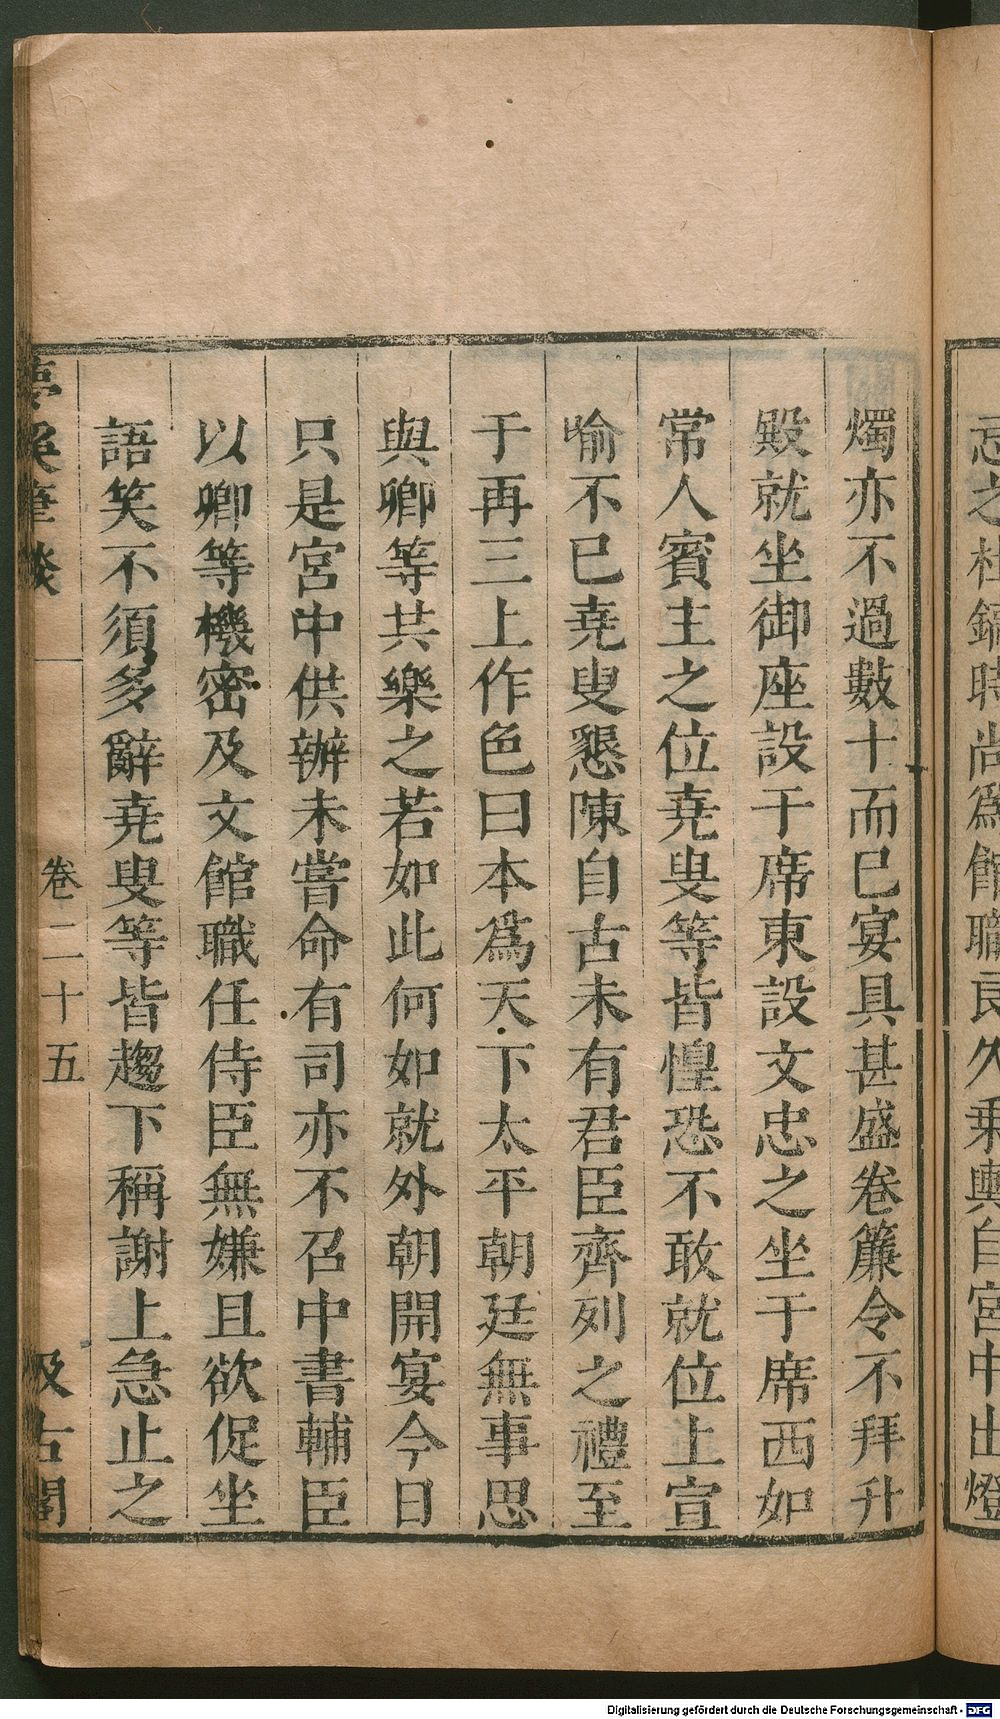 忘之杜鎬時尚爲館職良久乘輿自宮中出燈
燭亦不過數十而已宴具甚盛卷簾令不拜升
殿就坐御座設于席東設文忠之坐于席西如
常人賓主之位堯叟等皆惶恐不敢就位上宣
喻不已堯叟懇陳自古未有君臣齊列之禮至
于再三上作色曰本爲天下太平朝廷無事思
與卿等共樂之若如此何如就外朝開宴今日
只是宮中供辦未嘗命有司亦不召中書輔臣
以卿等機密及文館職任侍臣無嫌且欲促坐
語笑不須多辭堯叟等皆趨下稱謝上急止之
夢溪筆談 卷二十五 汲古閣
Digitalisierung gefördert durch die Deutsche Forschungsgemeinschaft - DFG